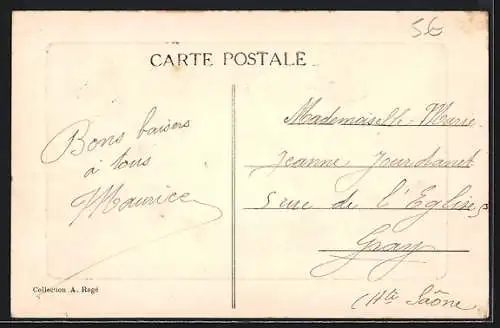 56
CARTE POSTALE
Bons baisers
à tous
Maurice
Mademoiselle
Jeanne Jourdanet
5 rue de l'Eglise
Gray
(Hte Saône
Collection A. Ragé